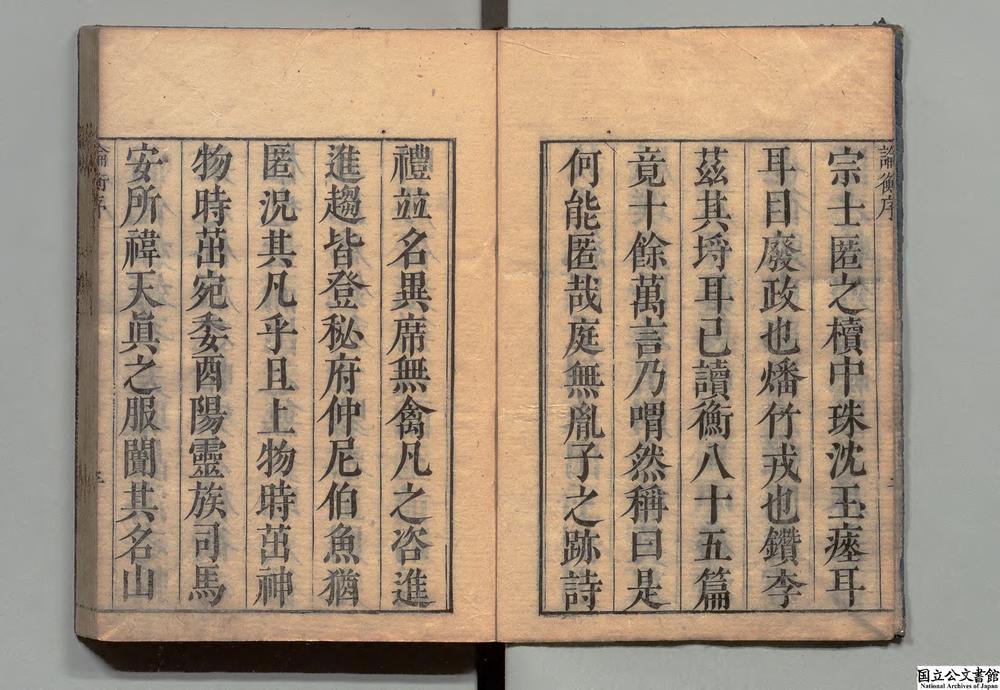 論衡序
宗士匿之櫝中珠沈玉瘞耳
耳目廢政也燔竹戎也鑽李
茲其埒耳已讀衡八十五篇
竟十餘萬言乃喟然稱曰是
何能匿哉庭無胤子之跡詩
禮竝名異席無禽凡之咨進
進趨皆登秘府仲尼伯魚猶
匿況其凡乎且上物時茁神
物時茁宛委酉陽靈族司馬
安所禕天眞之服闡其名山
論衡序
国立公文書館
National Archives of Japan